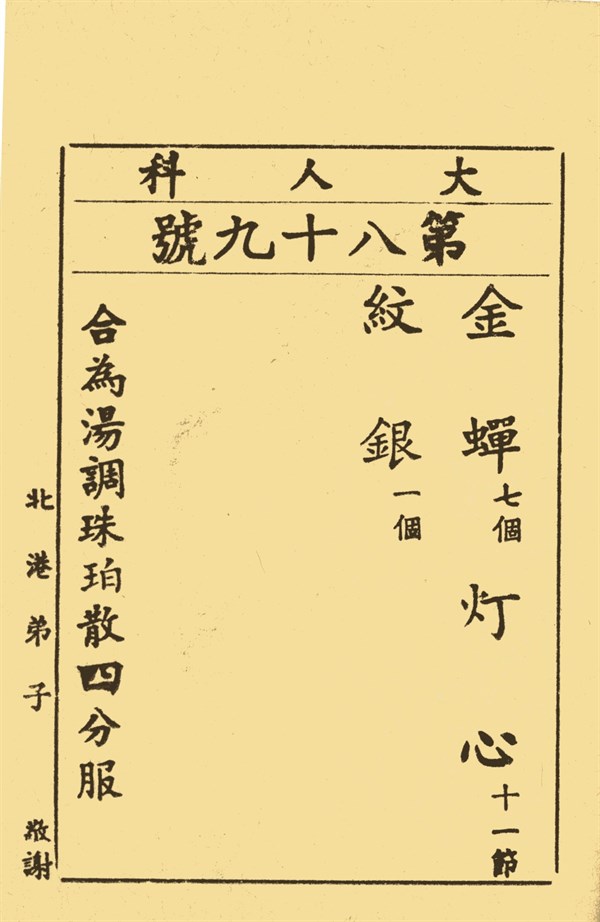 大人科
第八十九號
金蟬七個 灯心十一節
紋銀一個
合為湯調珠珀散四分服
北港弟子 敬謝